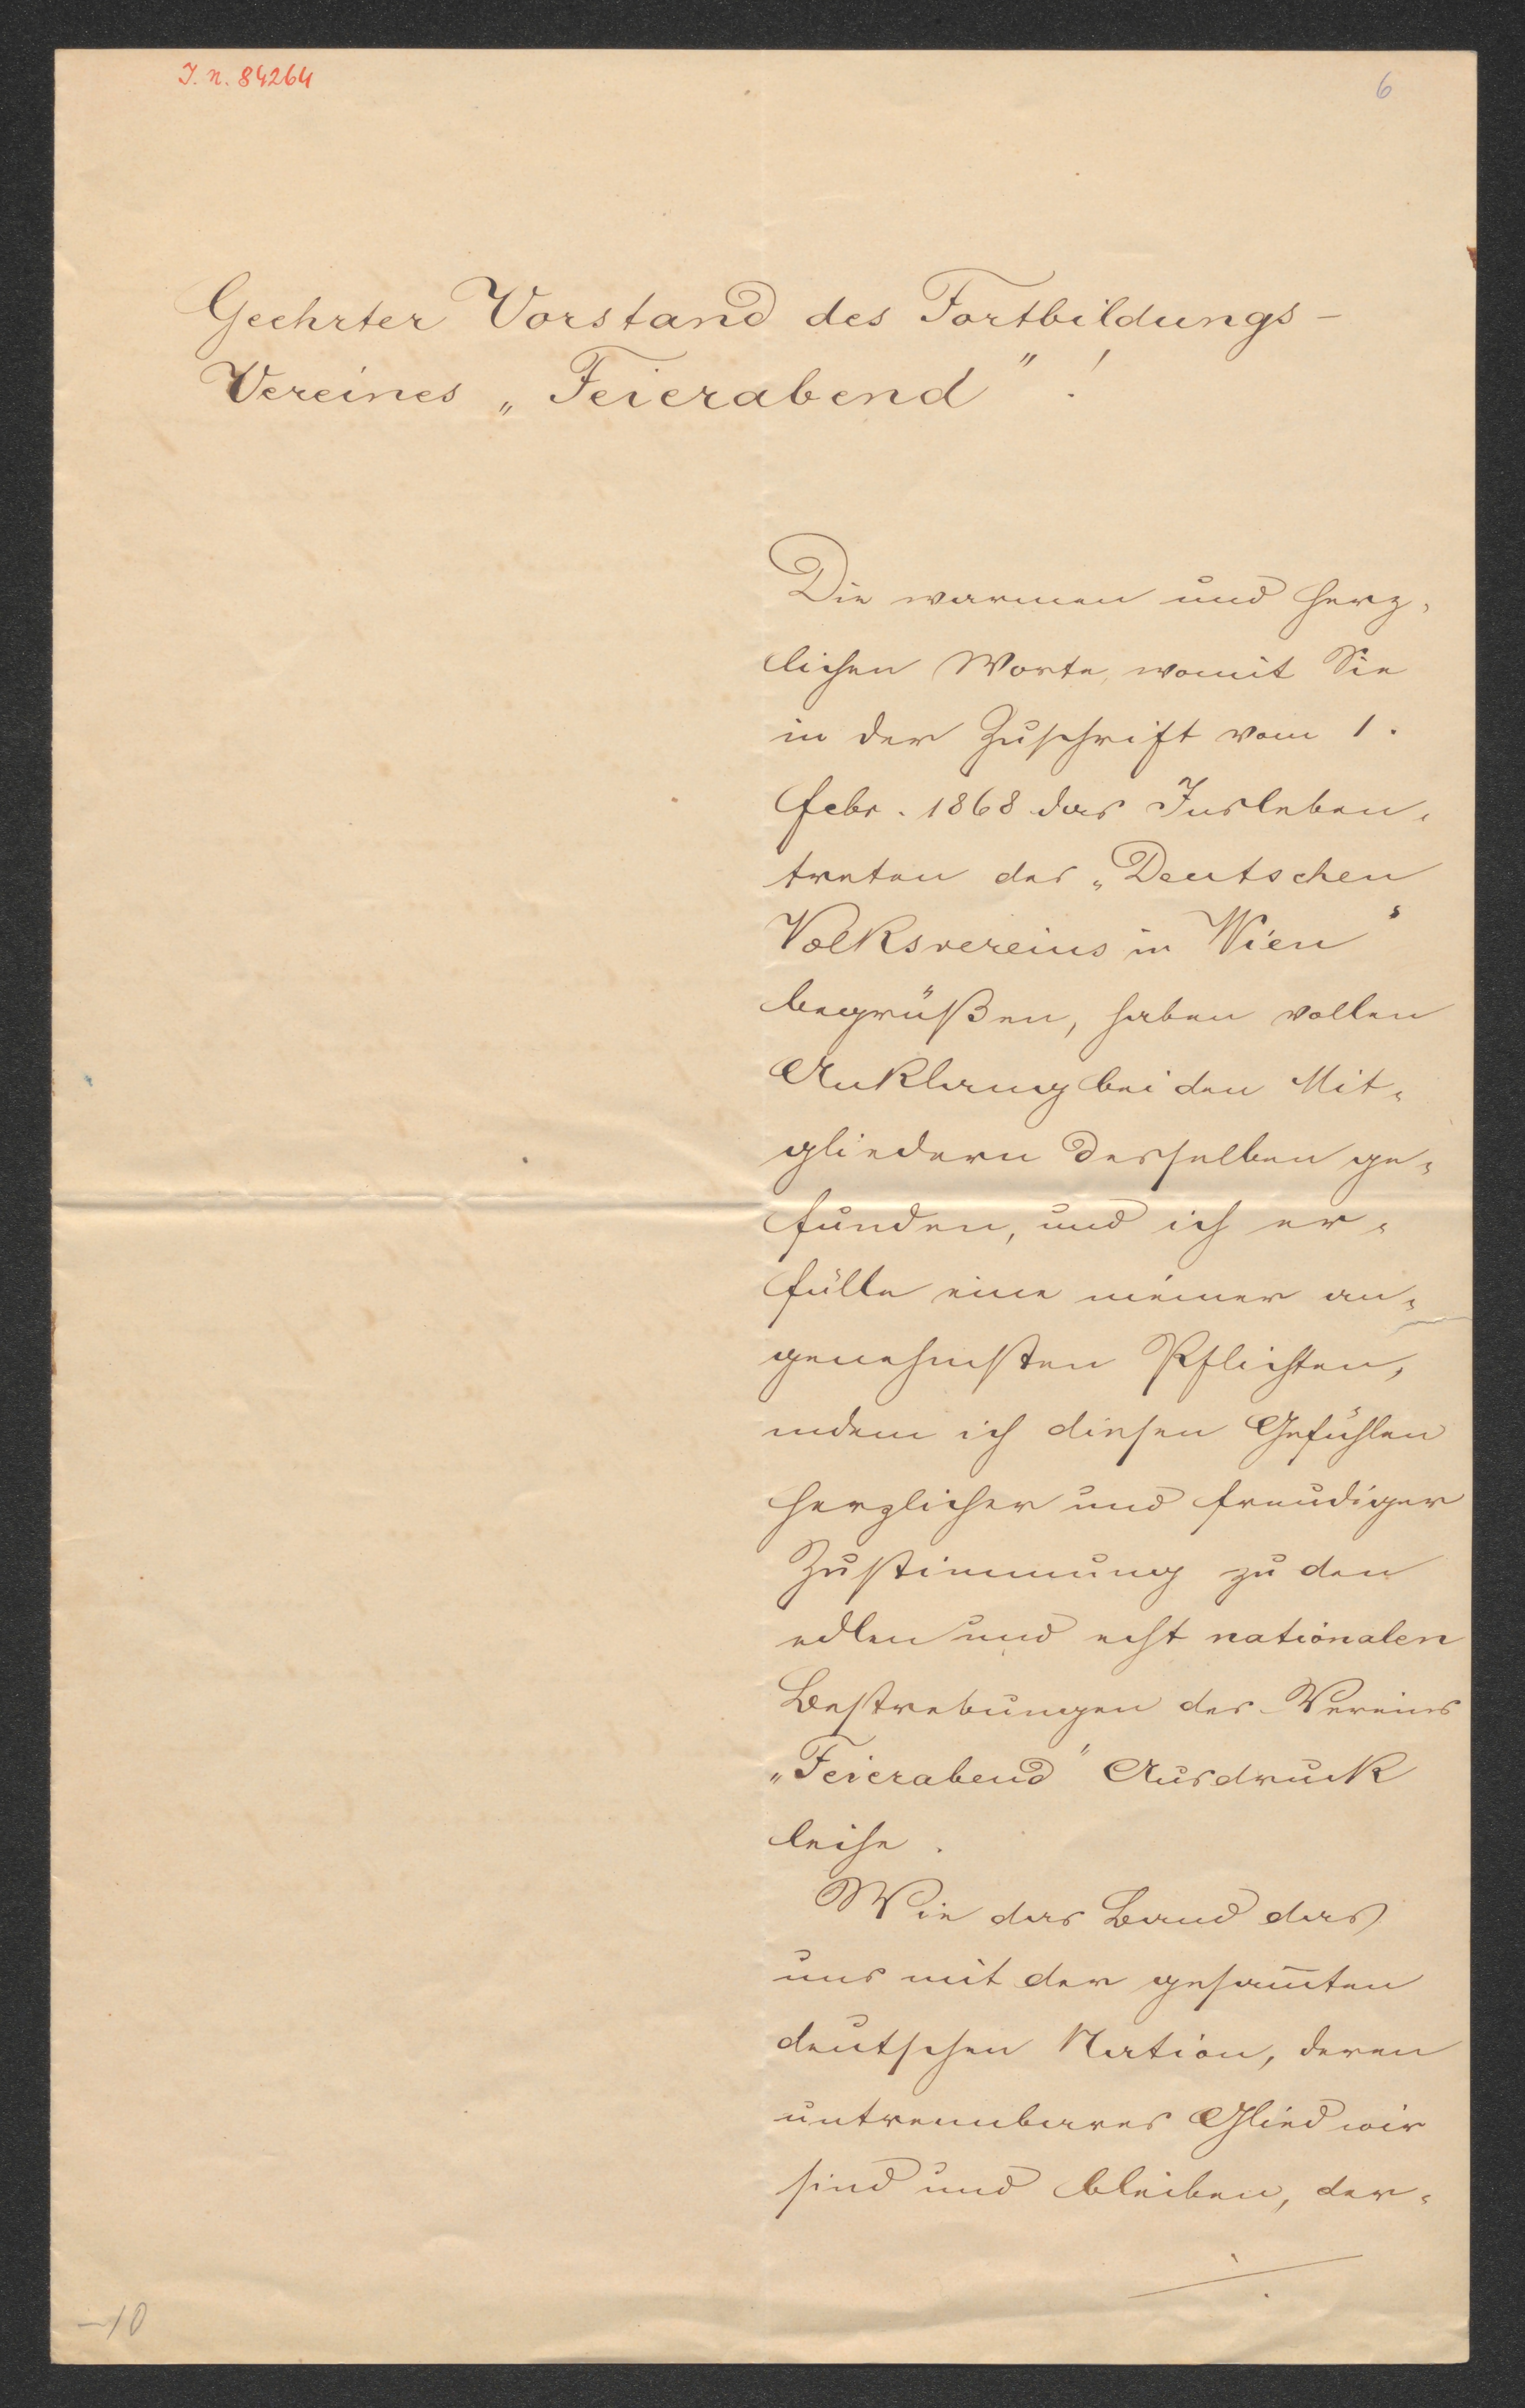 J. N. 84264
6
Geehrter Vorstand des Fortbildungs-
Vereines „Feierabend"!
Die warmen und herz-
lichen Worte, womit Sie
in der Zuschrift vom 1.
Febr. 1868 das Insleben-
treten des „Deutschen
Volksvereins in Wien"
begrüßen, haben vollen
Anklang bei den Mit-
gliedern desselben ge-
funden, und ich er-
fülle eine meiner an-
genehmsten Pflichten,
indem ich diesen Gefühlen
herzlicher und freudiger
Zustimmung zu den
edlen und echt nationalen
Bestrebungen des Vereins
„Feierabend" Ausdruck
leihe.
Wie das Band das
uns mit der gesam̅ten
deutschen Nation, deren
untrennbares Glied wir
sind und bleiben, der-
./.
-10